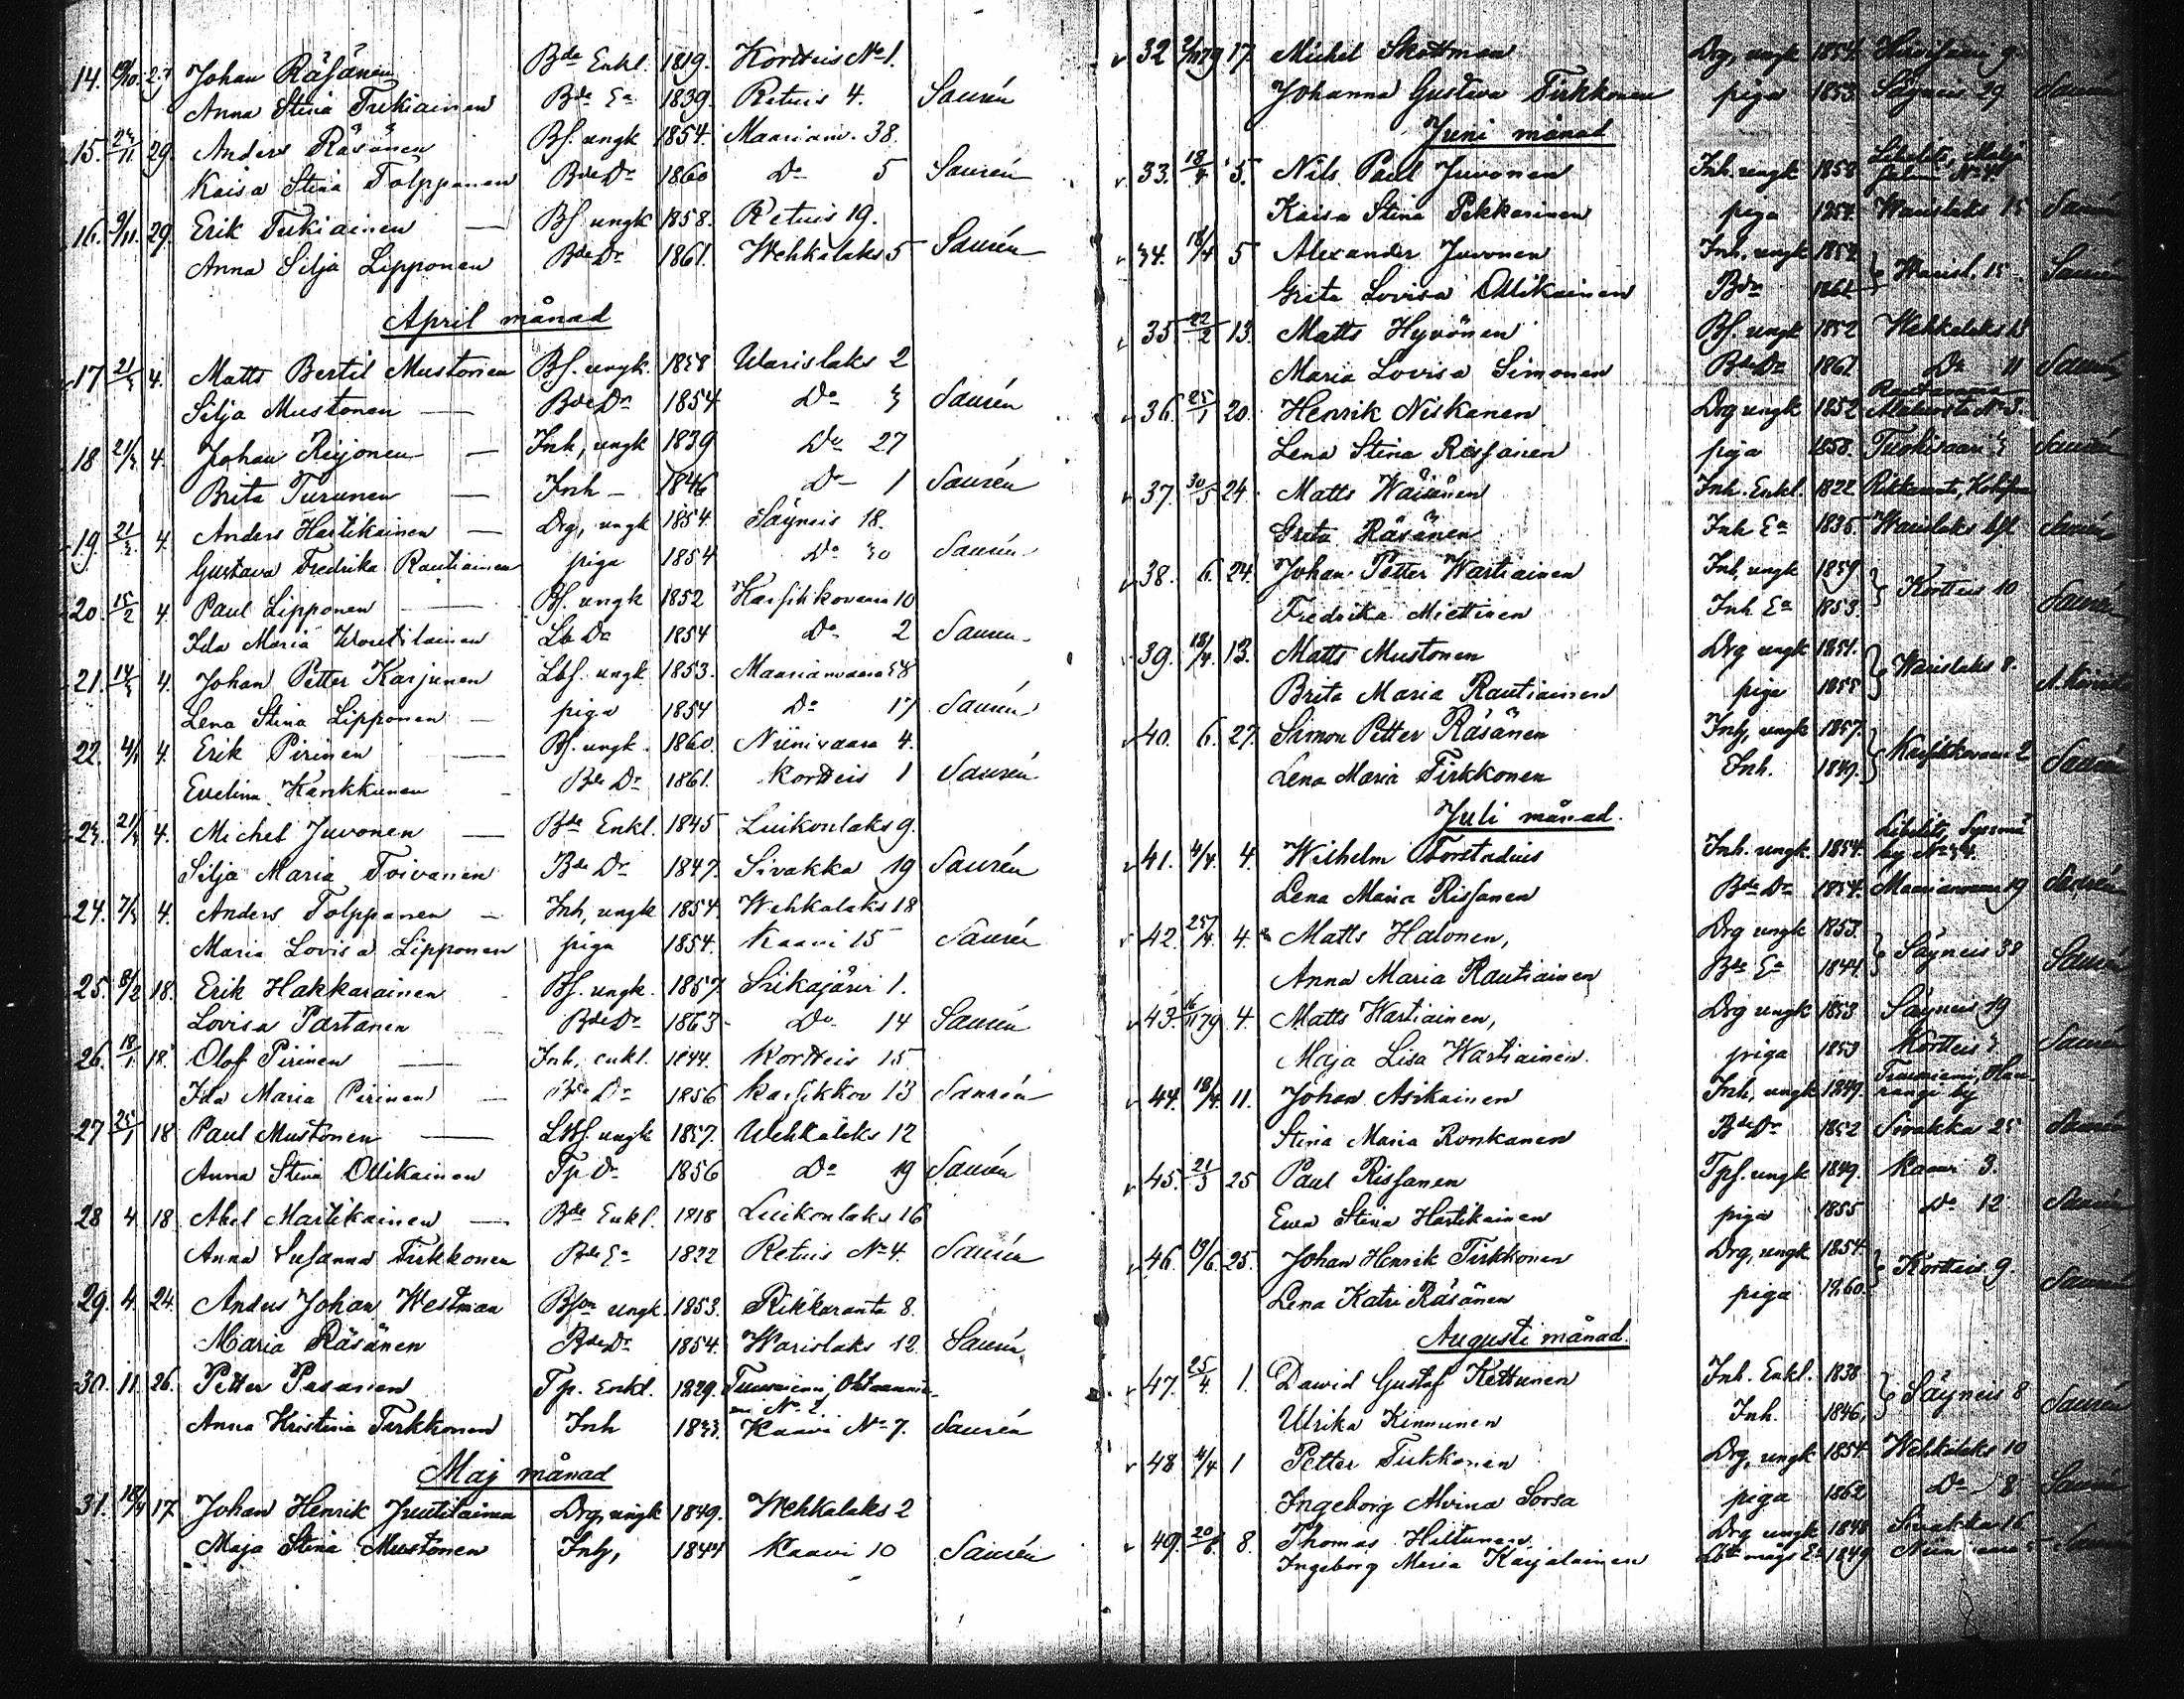 14. 19/10. 29 Johan Räsänen Bde Enkl. 1819. Kortteis No 1.
Anna Stina Tukiainen Bde Ea 1839. Retuis 4. Saurén
15. 24/11 29. Anders Räsänen Bf. ungk 1854. Maarianv. 38.
Kaisa Stina Tolppanen Bde Dr 1860 Do 5 Saurén
16. 9/11. 29. Erik Tukiainen — Bf ungk 1858. Retuis 19.
Anna Silja Lipponen Bde Dr 1861. Wehkalaks 5 Saurén
April månad
17 21/3 4. Matts Bertil Mustonen Bf. ungk. 1858 Warislaks 2
Silja Mustonen — Bde Dr 1854 Do 3 Saurén
18 21/3 4. Johan Reijonen — Inh, ungk 1839 Do 27
Brita Turunen — Inh — 1846 Do 1 Saurén
19. 21/3. 4. Anders Hartikainen — Drg, ungk 1854. Säyneis 18.
Gustava Fredrika Rautiainen piga 1854 Do 30 Saurén
20 15/2 4. Paul Lipponen — Bf. ungk 1852 Karsikkovaara 10
Ida Maria Woutilainen Lb Dr 1854 Do 2 Saurén
21. 14/3 4. Johan Petter Karjunen Lbf. ungk 1853. Maarianvaara 38
Lena Stina Lipponen — piga 1854 Do 17 Saurén
22. 4/1 4. Erik Pirinen — Bf. ungk. 1860. Niinivaara 4.
Evelina Karkkunen - Bde Dr 1861. Kortteis 1 Saurén
23. 21/3 4. Michel Juvonen — Bde Enkl. 1845 Luikonlaks 9.
Silja Maria Toivanen Bde Dr 1847. Sivakka 19 Saurén
24. 7/3 4. Anders Tolppanen — Inh, ungk 1854. Wehkalaks 18
Maria Lovisa Lipponen piga 1854. Kaavi 15 Saurén
25. 8/2 18. Erik Hakkarainen Bf. ungk. 1857. Siikajärvi 1.
Lovisa Partanen Bde Dr 1863 Do 14 Saurén
26. 18/1. 18. Olof Pirinen — Inh, enkl. 1844. Kortteis 15
Ida Maria Pirinen — Bde Dr 1856 Karsikkov 13 Saurén
27 25/1 18 Paul Mustonen — Lbf. ungk 1857. Wehkalaks 12
Anna Stina Ollikainen Tp Dr 1856 Do 19 Saurén
28 4 18. Abel Martikainen — Bde Enkl. 1818 Luikonlaks 16
Anna Susanna Tirkkonen Bde Ea 1822 Retuis No 4. Saurén
29. 4. 24. Anders Johan Westman Bson ungk. 1853. Rikkaranta 8.
Maria Räsänen Bde Dr 1854. Warislaks 12. Saurén
30. 11. 26. Petter Pasanen Tp. Enkl. 1829. Tuusniemi,
No 2
Anna Kristina Tirkkonen Inh 1833. Kaavi No 7. Saurén
Maj månad
31. 18/4 17. Johan Henrik Juutilainen Drg, ungk 1849. Wehkalaks 2
Maja Stina Mustonen Inh, 1844 Kaavi 10 Saurén
32 2/11 79 17. Michel Skottman Drg, ungk 1854. 9.
Johanna Gustava Tirkkonen piga 1853. Säyneis 29 Saurén
Juni månad
33. 18/4 5. Nils Paul Juvonen Inh. ungk 1858 Libelits,
Kaisa Stina Pekkarinen piga 1854. Warislaks 15 Saurén
34. 18/4 5 Alexander Juvonen Inh. ungk 1854
Greta Lovisa Ollikainen Bdr 1861 } Warisl. 15 Saurén
35 22/2 13. Matts Hyvönen Bf. ungk 1852 Wehkalaks 13
Maria Lovisa Simonen Bde Dr 1861 Do 11 Saurén
36. 25/1 20. Henrik Niskanen Drg ungk 1852
Lena Stina Rissanen piga 1858. Saurén
37. 30/5 24. Matts Wäisänen Inh. Enkl. 1822 Rikkarant,
Greta Räsänen Inh Ea 1835 Warislaks Saurén
38. 6. 24. Johan Petter Wartiainen Inh, ungk 1859
Fredrika Miettinen Inh Ea 1853. } Kortteis 10 Saurén
39. 18/4. 13. Matts Mustonen Drg ungk 1854.
Brita Maria Rautiainen piga 1855 } Warislaks 8.
40. 6. 27. Simon Petter Räsänen Inh, ungk 1857.
Lena Maria Tirkkonen Inh. 1849. } Karsikkovaara 2 Saurén
Juli månad.
41. 4/4. 4. Wilhelm Forstadius Inh. ungk. 1854 Libelits,
Lena Maria Rissanen Bde Dr 1854. Maarianvaara 19 Saurén
42. 25/4 4. Matts Halonen, Drg ungk 1853.
Anna Maria Rautiainen Bde Ea 1844 } Säyneis 38 Saurén
43. 16/11 79 4. Matts Wartiainen, Drg ungk 1853 Säyneis 19
Maja Lisa Wartiainen. piga 1853 Kortteis 7 Saurén
44. 18/4. 11. Johan Asikainen Inh, ungk 1849. Tuusniemi,
Stina Maria Ronkanen Bde Dr 1852 Sivakka 25 Saurén
45. 21/3 25 Paul Rissanen Tpf. ungk 1849. Kaavi 3.
Ewa Stina Hartikainen piga 1855 Do 12 Saurén
46. 13/6. 25. Johan Henrik Tirkkonen Drg, ungk 1854
Lena Katri Räsänen piga 1860. } Kortteis 9. Saurén
Augusti månad.
47. 25/4. 1. Dawid Gustaf Kettunen Inh. Enkl. 1838
Ulrika Kinnunen Inh. 1846, } Säyneis 8 Saurén
48 4/4 1 Petter Tirkkonen Drg, ungk 1854. Wehkalaks 10
Ingeborg Alvina Sorsa piga 1862 Do 8 Saurén
49. 20/6 8. Thomas Hiltunen Drg ungk 1848 Sivakka 16
Ingeborg Maria Karjalainen mågs Ea 1849